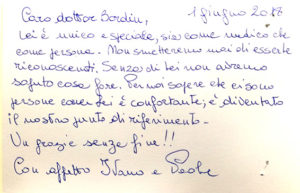 Caro dottor Bordin, 1 giugno 2018
Lei è unico e speciale, sia come medico che
come persona. Non smetteremo mai di esserle
riconoscenti. Senza di Lei non avremo
saputo cosa fare. Per noi sapere che ci sono
persone come Lei è confortante; è diventato
il nostro punto di riferimento.
Un grazie senza fine!!
Con affetto Ivano e